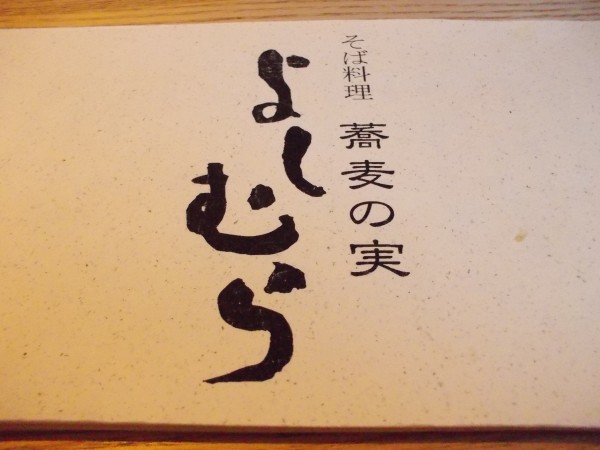 そば料理 蕎麦の実
よしむら